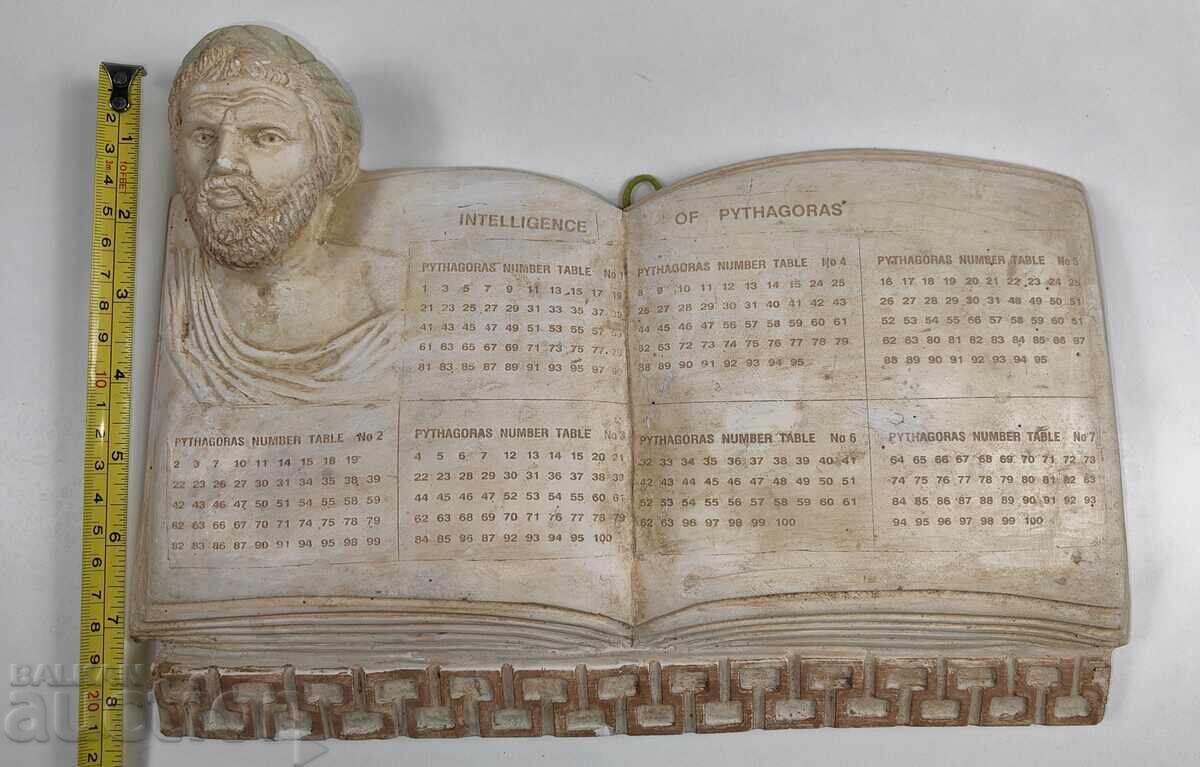 INTELLIGENCE OF PYTHAGORAS
PYTHAGORAS NUMBER TABLE No
1 3 5 7 9 11 13 15 17 19
21 23 25 27 29 31 33 35 37
41 43 45 47 49 51 53 55 57
61 63 65 67 69 71 73 75 77 79
81 83 85 87 89 91 93 95 97
PYTHAGORAS NUMBER TABLE No 4
8 9 10 11 12 13 14 15 24 25
26 27 28 29 30 31 40 41 42 43
44 45 46 47 56 57 58 59 60 61
62 63 72 73 74 75 76 77 78 79
88 89 90 91 92 93 94 95
PYTHAGORAS NUMBER TABLE No 5
16 17 18 19 20 21 22 23 24 25
26 27 28 29 30 31 48 49 50 51
52 53 54 55 56 57 58 59 60 61
62 63 80 81 82 83 84 85 86 87
88 89 90 91 92 93 94 95
PYTHAGORAS NUMBER TABLE No 2
2 3 7 10 11 14 15 18 19
22 23 26 27 30 31 34 35 38 39
42 43 46 47 50 51 54 55 58 59
62 63 66 67 70 71 74 75 78 79
82 83 86 87 90 91 94 95 98 99
PYTHAGORAS NUMBER TABLE No 3
4 5 6 7 12 13 14 15 20 21
22 23 28 29 30 31 36 37 38 39
44 45 46 47 52 53 54 55 60 61
62 63 68 69 70 71 76 77 78 79
84 85 86 87 92 93 94 95 100
PYTHAGORAS NUMBER TABLE No 6
32 33 34 35 36 37 38 39 40 41
42 43 44 45 46 47 48 49 50 51
52 53 54 55 56 57 58 59 60 61
62 63 96 97 98 99 100
PYTHAGORAS NUMBER TABLE No 7
64 65 66 67 68 69 70 71 72 73
74 75 76 77 78 79 80 81 82 83
84 85 86 87 88 89 90 91 92 93
94 95 96 97 98 99 100
1 2 3 4 5 6 7 8
2 3 3m 4 5 6 7 8 9 10 1 2 3 4 5 6 7 8 9 20 1 2